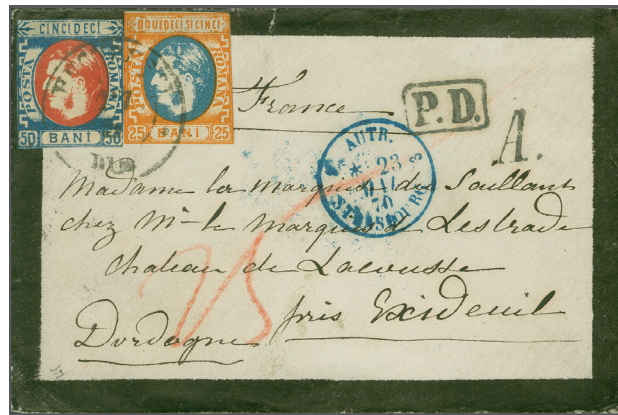 CINCI DECI
POSTA
ROMANA
50 BANI 50
DOUEDECI SI CINCI
POSTA
ROMANA
25 BANI 25
France
P.D.
A.
AUTR.
23
70
STRASBOURG 3
Madame la marquise du Saillant
chez Mr le Marquis de Lestrade
chateau de Lacousse
près Exideuil
Dordogne